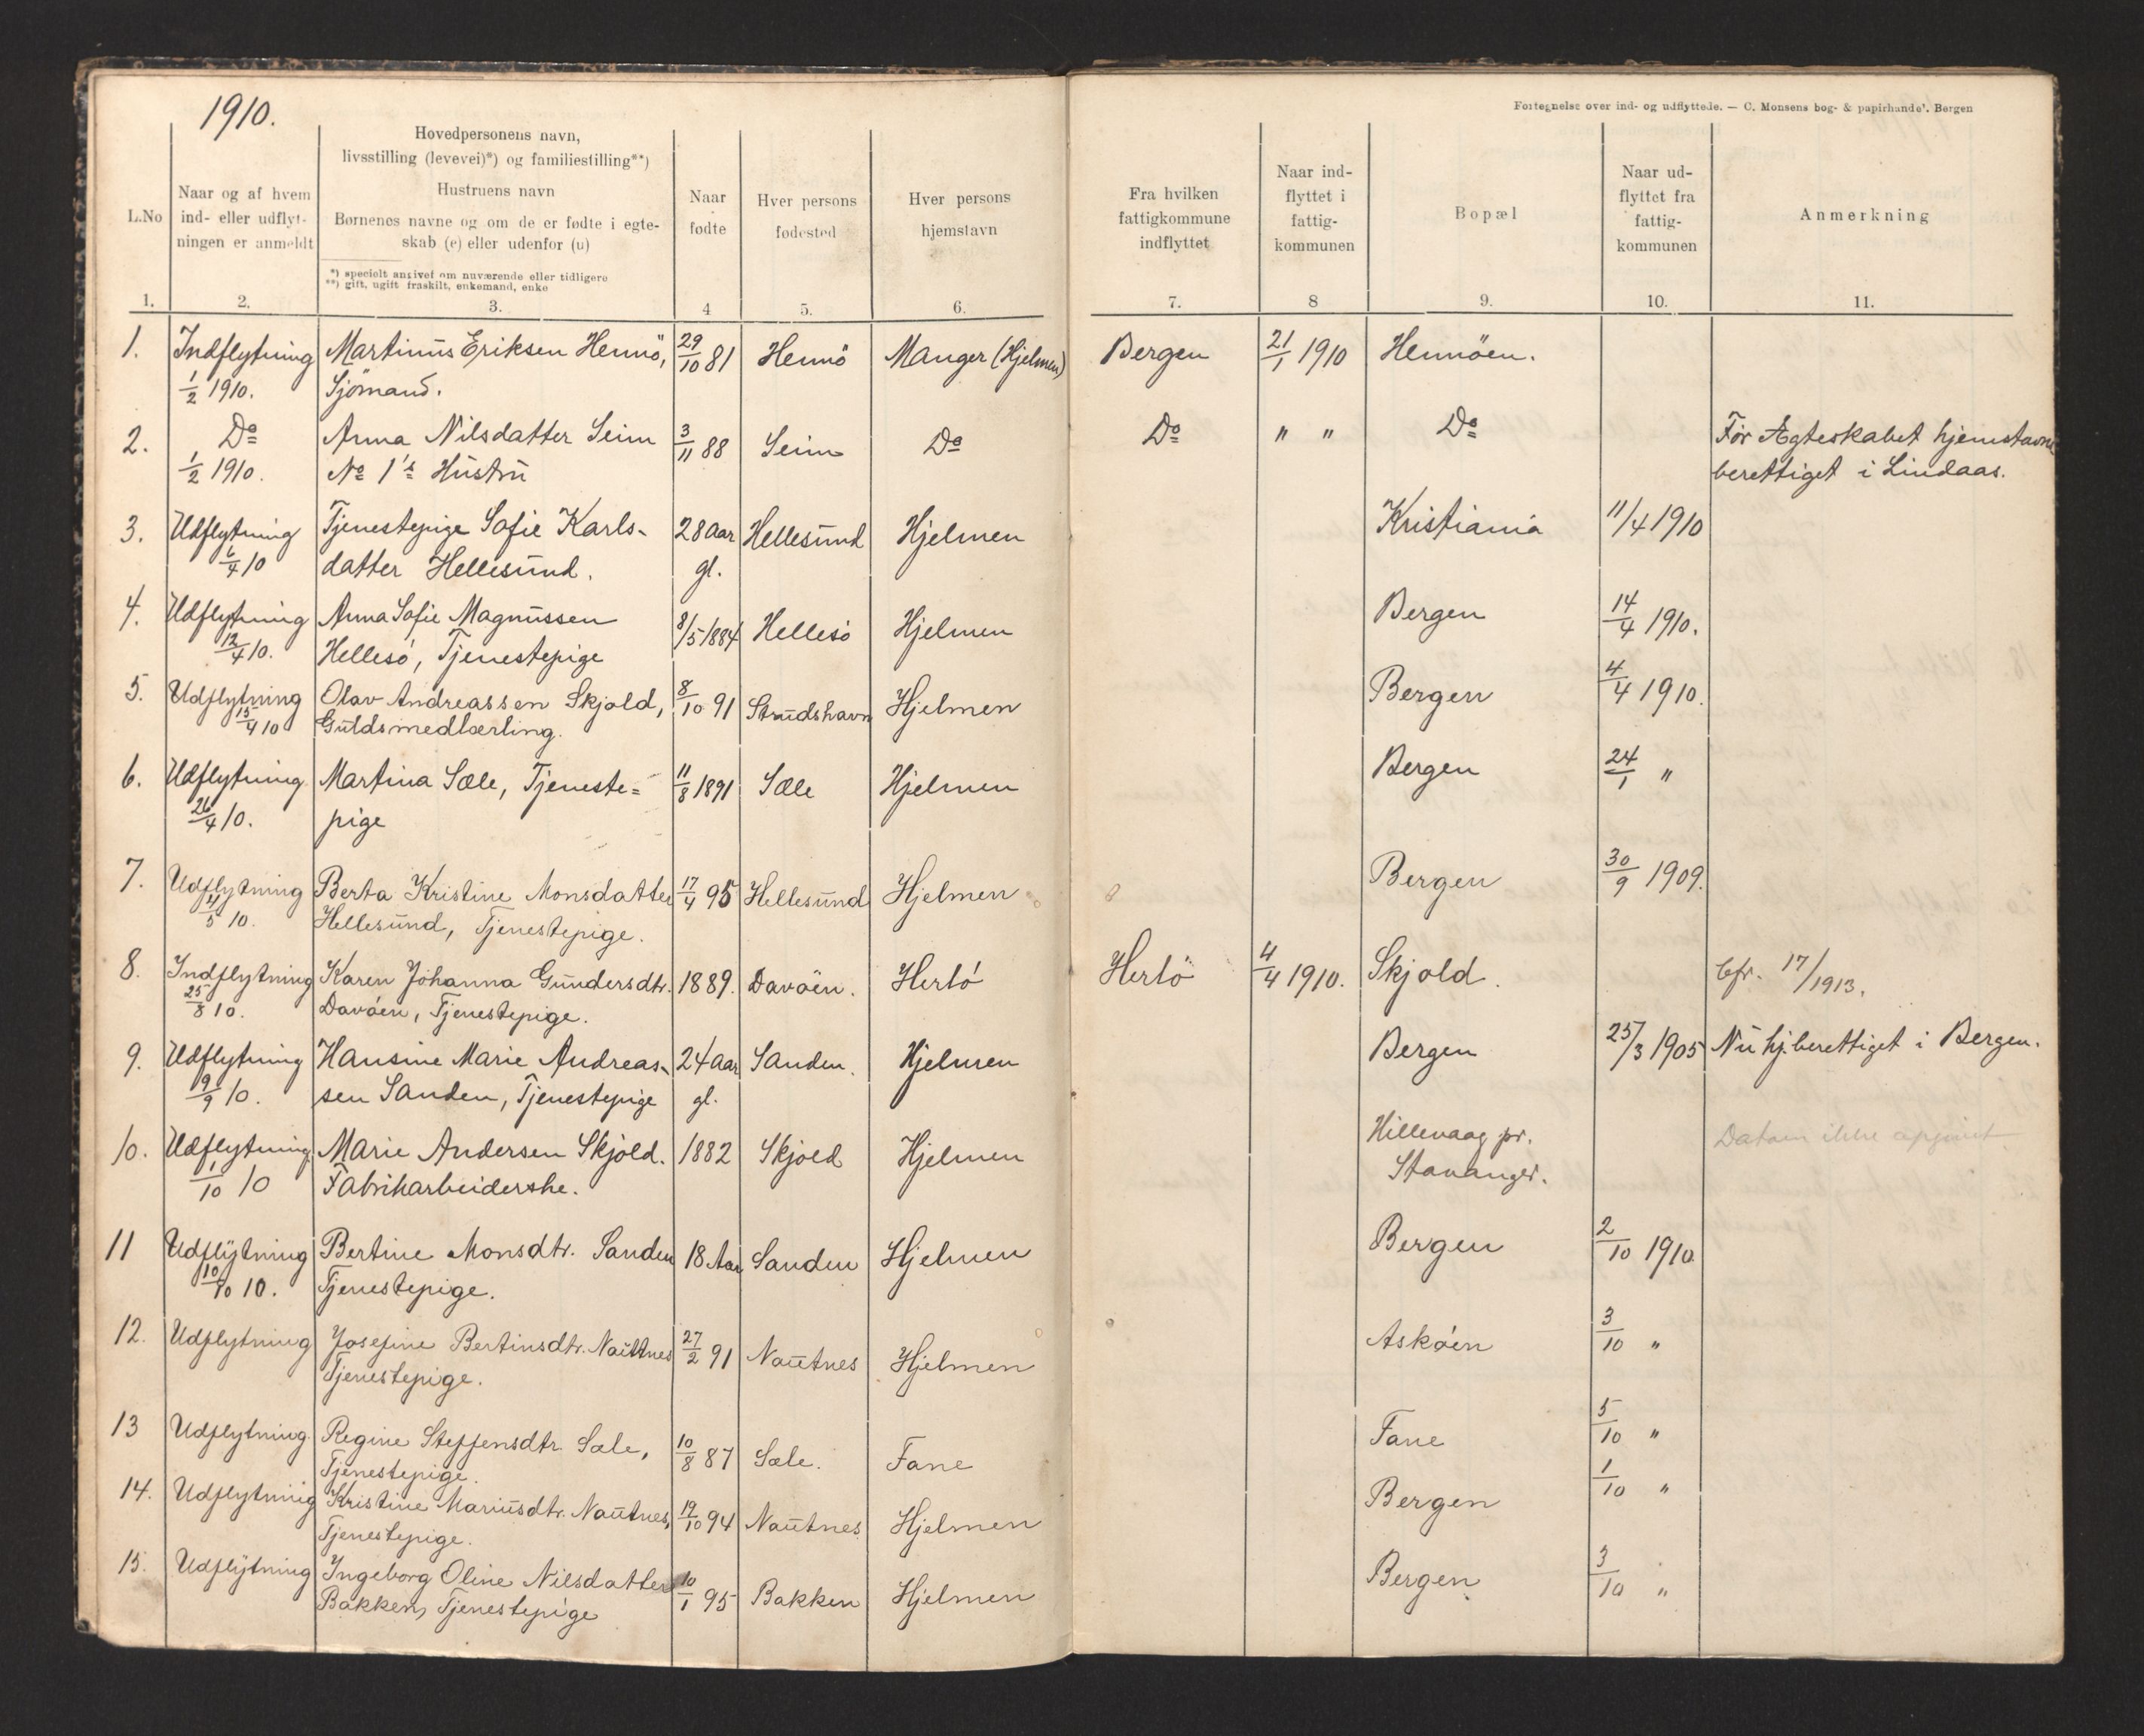 1910.
Fortegnelse over ind- og udflyttede. — C. Monsens bog- & papirhandel. Bergen
L.No
Naar og af hvem
ind- eller udflyt-
ningen er anmeldt
Hovedpersonens navn,
livsstilling (levevei)*) og familiestilling**)
Hustruens navn
Børnenes navne og om de er fødte i egte-
skab (e) eller udenfor (u)
*) specielt angivet om nuværende eller tidligere
**) gift, ugift fraskilt, enkemand, enke
Naar
fødte
Hver persons
fødested
Hver persons
hjemstavn
Fra hvilken
fattigkommune
indflyttet
Naar ind-
flyttet i
fattig-
kommunen
Bopæl
Naar ud-
flyttet fra
fattig-
kommunen
Anmerkning
1. 2. 3. 4 5. 6. 7. 8 9. 10. 11.
1. Indflytning Martinus Eriksen Hennö, 29/10 81 Hennö Manger (Hjelmen) Bergen 21/1 1910 Hennöen.
1/2 1910. Sjömand.
2. Do Anna Nilsdatter Seim 3/11 88 Seim Do Do " " Do Før Ægteskabet hjemstavns
1/2 1910. No 1's Hustru berettiget i Lindaas.
3. Udflytning Tjenestepige Sofie Karls- 28 aar Hellesund Hjelmen Kristiania 11/4 1910
6/4 10 datter Hellesund. gl.
4. Udflytning Anna Sofie Magnussen 8/5 1884 Hellesö Hjelmen Bergen 14/4 1910.
12/4 10. Hellesö, Tjenestepige
5. Udflytning Olav Andreassen Skjold, 8/10 91 Strudshavn Hjelmen Bergen 4/4 1910.
15/4 10 Guldsmedlærling.
6. Udflytning Martina Sæle, Tjeneste= 11/8 1891 Sæle Hjelmen Bergen 24/1 "
26/4 10. pige
7. Udflytning Berta Kristine Monsdatter 17/4 95 Hellesund Hjelmen Bergen 30/9 1909.
4/5 10. Hellesund, Tjenestepige.
8. Indflytning Karen Johanna Gundersdtr. 1889. Davöen. Herlö Herlö 4/4 1910. Skjold. Cfr. 17/1913.
25/8 10. Davöen, Tjenestepige.
9. Udflytning Hansine Marie Andreas- 24 aar Sanden. Hjelmen Bergen 25/3 1905 Nu hj.berettiget i Bergen.
9/9 10. sen Sanden, Tjenestepige gl.
10. Udflytning Marie Andersen Skjold. 1882 Skjold Hjelmen Hillevaag pr. Datum ikke opgivet
1/10 10 Fabrikarbeiderske. Stavanger.
11 Udflytning Bertine Monsdtr. Sanden 18 Aar Sanden Hjelmen Bergen 2/10 1910
10/10 10. Tjenestepige.
12. Udflytning Josefine Bertinsdtr. Nautnes 27/2 91 Nautnes Hjelmen Askøen 3/10 "
Tjenestepige.
13 Udflytning Regine Steffensdtr Sæle, 10/8 87 Sæle. Fane Fane 5/10 "
Tjenestepige.
14. Udflytning Kristine Mariusdtr. Nautnes, 19/10 94 Nautnes Hjelmen Bergen 1/10 "
Tjenestepige.
15. Udflytning Ingeborg Oline Nilsdatter 10/1 95 Bakken Hjelmen Bergen 3/10 "
Bakken, Tjenestepige